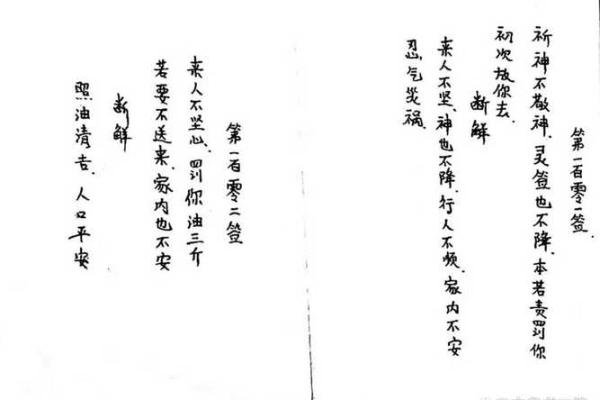 第一百零一签
祈神不敬神、灵签也不降、本若责罚你
初次放你去、
断解
来人不坚、神也不降、行人不顺、家内不安
忍气災祸、
第一百零二签
来人不坚心、罚你油三斤
若要不送来、家内也不安
断解
照油清吉、人口平安